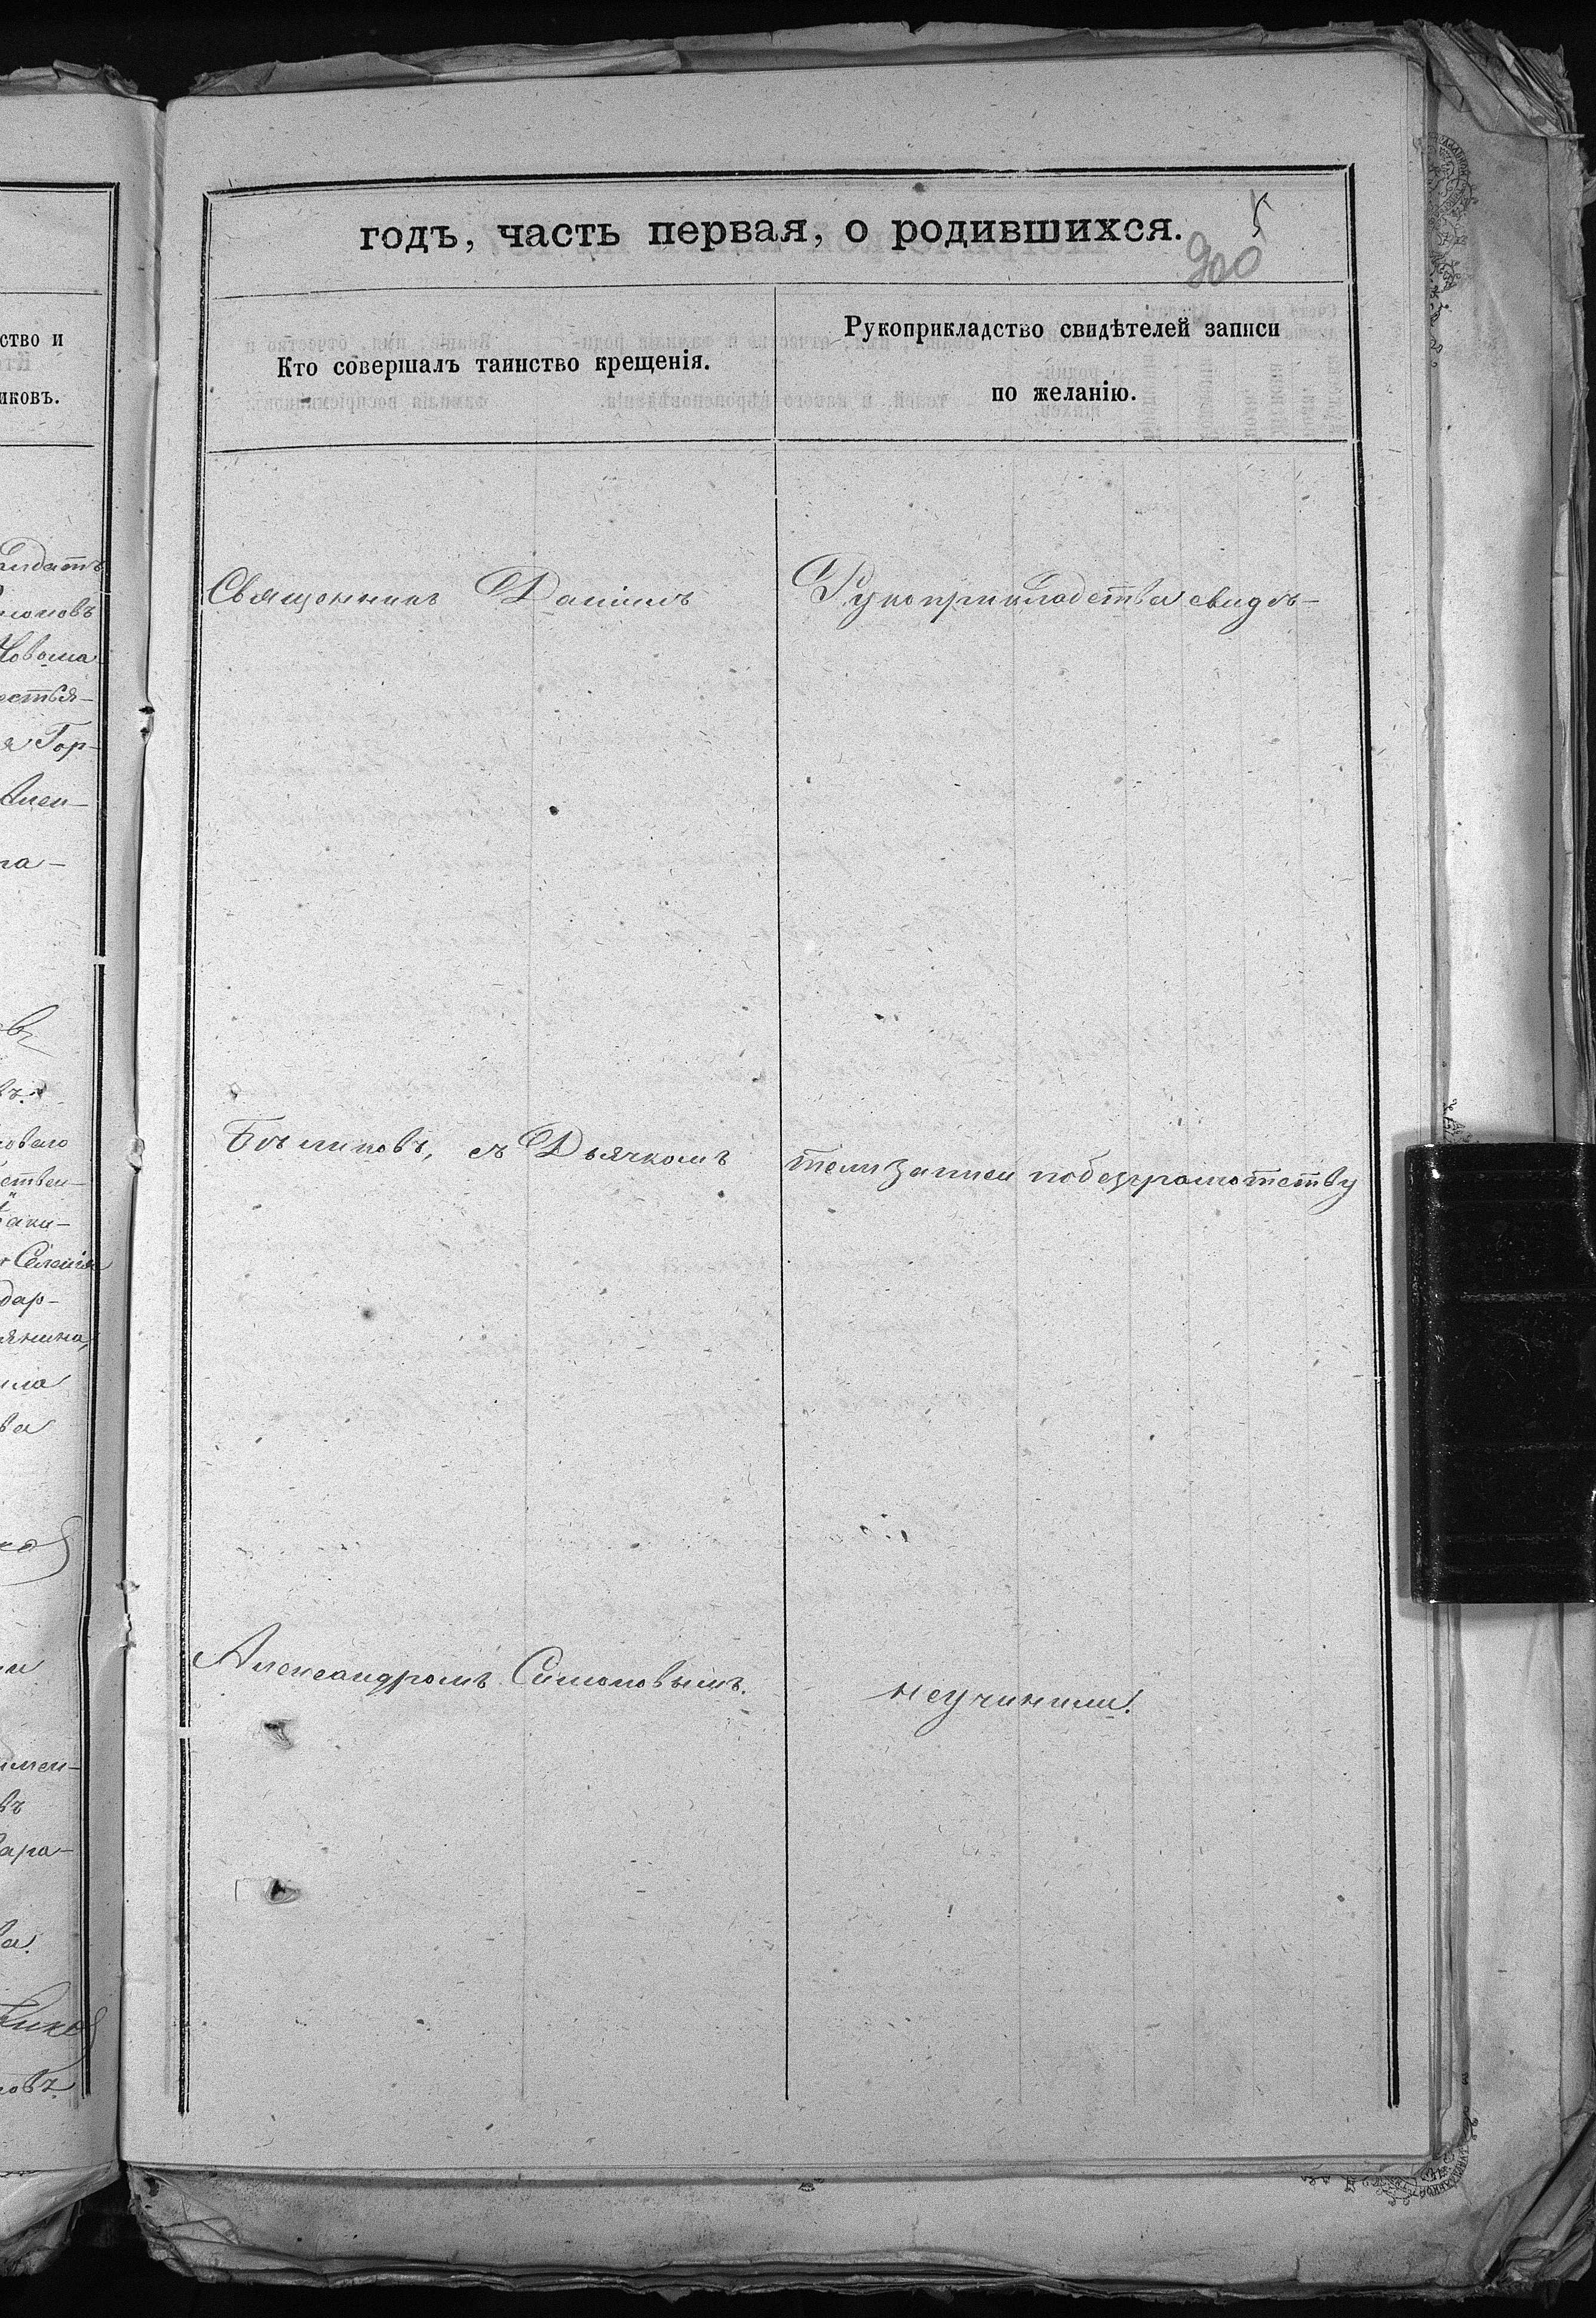 годъ, часть первая, о родившихся.
5
900
Кто совершалъ таинство крещенія.
Рукоприкладство свидѣтелей записи
по желанію.
Священникъ Даніилъ
Бѣликовъ, съ Дьячкомъ
Александромъ Симоновымъ.
Рукоприкладства свидѣ-
тели записи побезграмотству
неучинили.
ство и
иковъ.
естья-
я Гор-